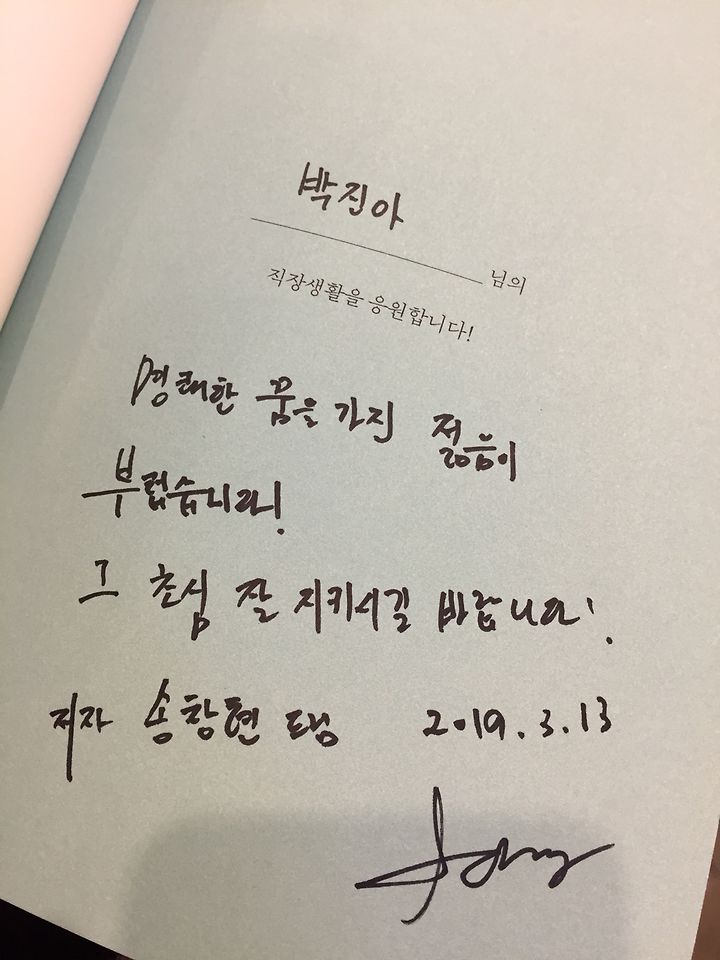 박진아
님의
직장생활을 응원합니다!
명쾌한 꿈을 가진 젊음이
부럽습니다!
그 초심 잘 지키시길 바랍니다!
저자 송창현 드림 2019.3.13